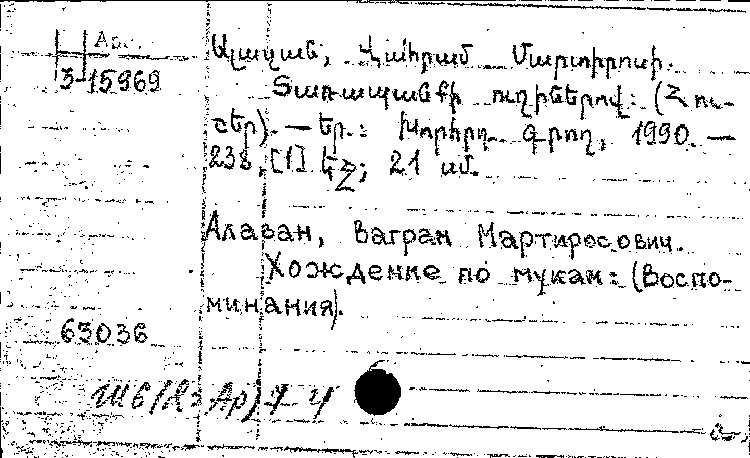 3-15969
Ալազան, Վահրամ Մարտիրոսի.
Տառապանքի ուղիներով: (Հու-
շեր). — Եր.: Խորհրդ. գրող, 1990. —
238, [1] էջ; 21 սմ.
Алазан, Ваграм Мартиросович.
Хождение по мукам: (Воспо-
минания).
63036